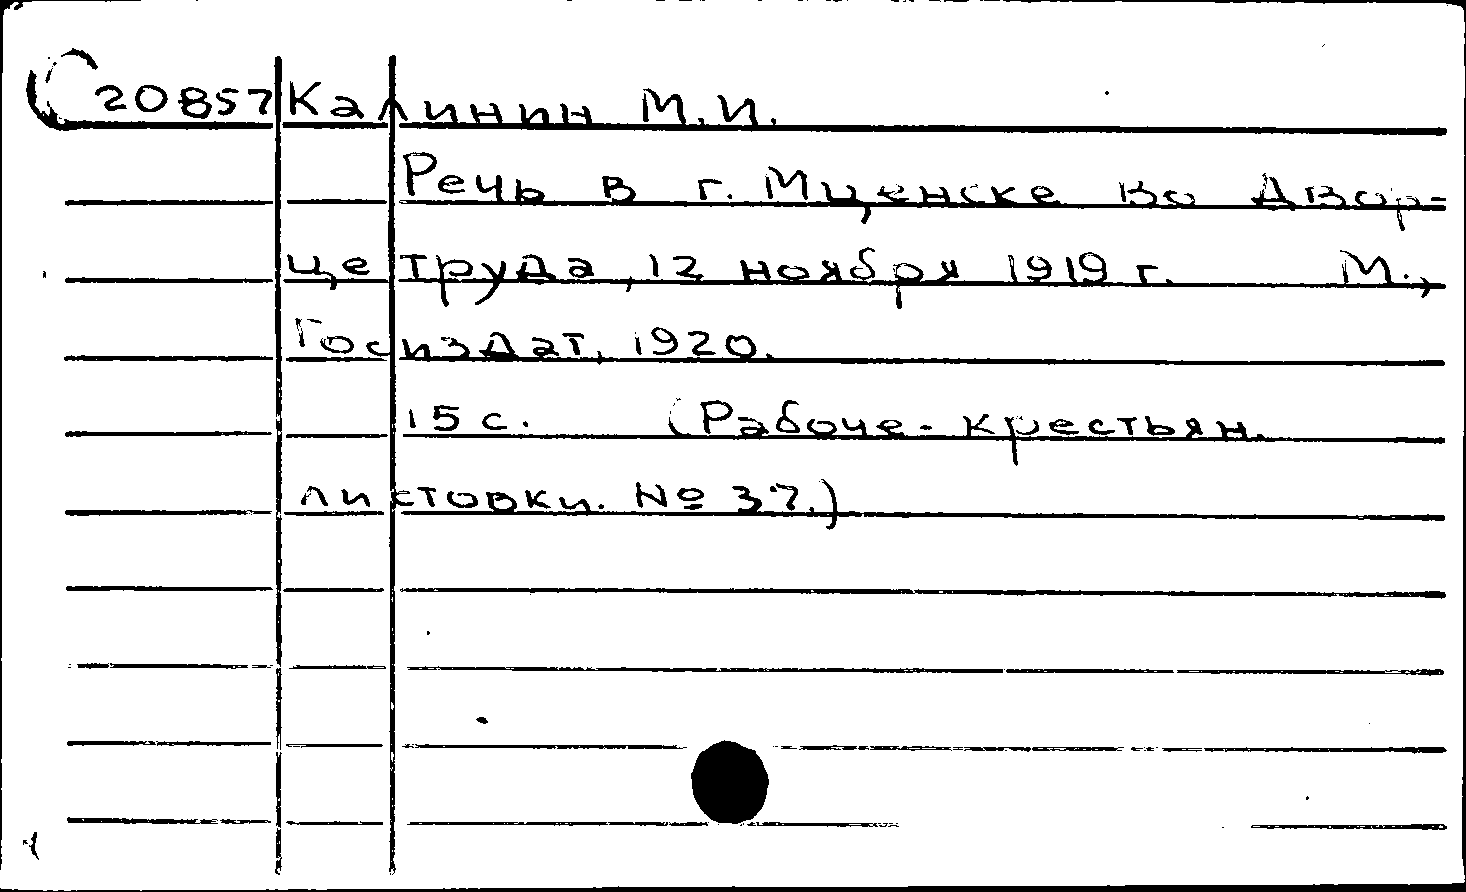 20857 Калинин М.И.
Речь в г. Мценске во Двор-
це труда, 12 ноября 1919 г. М.,
Госиздат, 1920.
15 с. (Рабоче-крестьян.
листовки. № 37.)